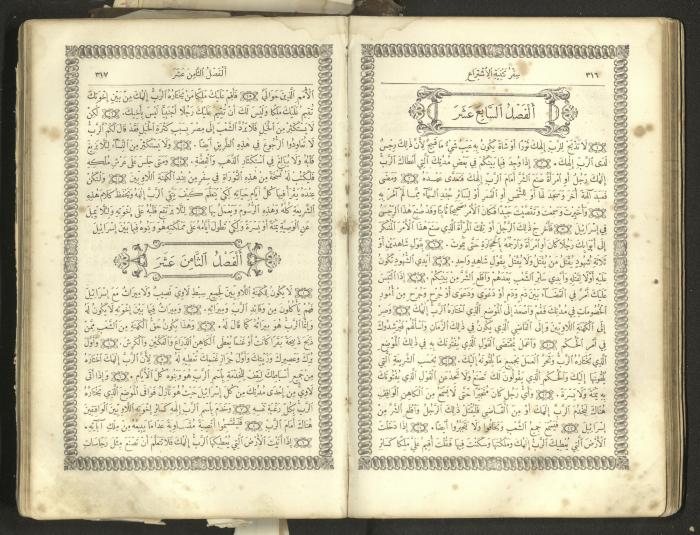 ٣١٦ سفر تثنية الاشتراع
ألفصل السابع عشر
لا تذبح للرب إلهك ثورا أو شاة يكون به عيب شيء ما قبيح لأن ذلك رجس
لدى الرب إلهك. إذا وجد فيما بينكم في بعض مدنك التي أعطاك الرب
إلهك رجل أو امرأة صنع الشر أمام الرب إلهك فتعدى عهده ومضى
فعبد آلهة أخر وسجد لها أو للشمس أو القمر أو لسائر جند السماء مما لم آمر به
وأخبرت وسمعت وتقصيت جيدا فكان الأمر صحيحا ثابتا وقد صنع هذا الرجس
في إسرائيل فأخرج ذلك الرجل أو تلك المرأة الذي صنع هذا الأمر المنكر
إلى أبوابك رجلا كان أو امرأة وارجمه بالحجارة حتى يموت. بقول شاهدين أو
ثلاثة شهود يقتل من يقتل ولا يقتل بقول شاهد واحد. أيدي الشهود تكون
عليه أولا لقتله وأيدي سائر الشعب بعدهم واقلع الشر من بينكم. إذا التبس
عليك أمر في القضاء بين دم ودم أو دعوى ودعوى أو جرح وجرح من أمور
الخصومات في مدنك فقم واصعد إلى الموضع الذي اختاره الرب إلهك وصر
إلى الكهنة اللاويين وإلى القاضي الذي يكون في ذلك الزمان واسألهم فيرشدوك
في أمر الحكم واعمل بمقتضى القول الذي يفتونك به في ذلك الموضع
الذي يختاره الرب وتحر العمل بجميع ما يفتونك به. بحسب الشريعة التي
يفتونها إليك والحكم الذي يقولون لك تصنع ولا تحد عن القول الذي يفتونك
به يمنة ولا يسرة. وأي رجل كان متجبرا حتى لا يسمع من الكاهن الواقف
هناك لخدمة الرب إلهك أو من القاضي فليقتل ذلك الرجل واقلع الشر من
إسرائيل. فيسمع جميع الشعب ويخافوا ولا يتجبروا أيضا. إذا دخلت
الأرض التي يعطيك الرب إلهك وملكتها وسكنت فيها فقلت أقيم علي ملكا كسائر
ألفصل الثامن عشر ٣١٧
الأمم الذين حوالي فأقم عليك ملكا من يختاره الرب إلهك من بين إخوتك
تقيم عليك ملكا وليس لك أن تقيم عليك رجلا أجنبيا ليس بأخيك. لكن
لا يستكثر من الخيل ولا يرد الشعب إلى مصر بسبب كثرة الخيل فقد قال لكم الرب
لا تعاودوا الرجوع في هذه الطريق أيضا. ولا يستكثر من النساء لئلا يزيغ
قلبه ولا يبالغ في استكثار الذهب والفضة. ومتى جلس على عرش ملكه
فليكتب له نسخة من هذه التوراة في سفر من عند الكهنة اللاويين ولتكن
عنده يقرأ فيها كل أيام حياته لكي يتعلم كيف يتقي الرب إلهه ويحفظ كلام هذه
الشريعة كله وهذه الرسوم ويعمل بها لئلا يرتفع قلبه على إخوته ولئلا يميل
عن الوصية يمنة أو يسرة ولكي تطول أيامه على مملكته هو وبنوه فيما بين إسرائيل
ألفصل الثامن عشر
لا يكون للكهنة اللاويين لجميع سبط لاوي نصيب ولا ميراث مع إسرائيل
فهم يأكلون من وقائد الرب وميراثه. وميراث فيما بين إخوته لا يكون له
وإنما الرب هو ميراثه كما قال له. وهذا يكون حق الكهنة من الشعب ممن
ذبح ذبيحة بقرا كانت أو غنما يعطى الكاهن الذراع والفكين والكرش. وأوائل
برك وعصيرك وزيتك وأول جزاز غنمك تعطيه له لأن الرب إلهك اختاره
من جميع أسباطك ليقف للخدمة باسم الرب هو وبنوه كل الأيام. وإذا أتى
لاوي من إحدى مدنك من كل إسرائيل حيث هو نازل فوافى الموضع الذي يختاره
الرب بكل رغبة نفسه وخدم باسم الرب إلهه كسائر إخوته اللاويين الواقفين
هناك أمام الرب فليقتسموا أنصبة متساوية عدا ما يبيعه من ملك آبائه.
إذا أتيت الأرض التي يعطيكها الرب إلهك فلا تتعلم أن تصنع مثل رجاسات